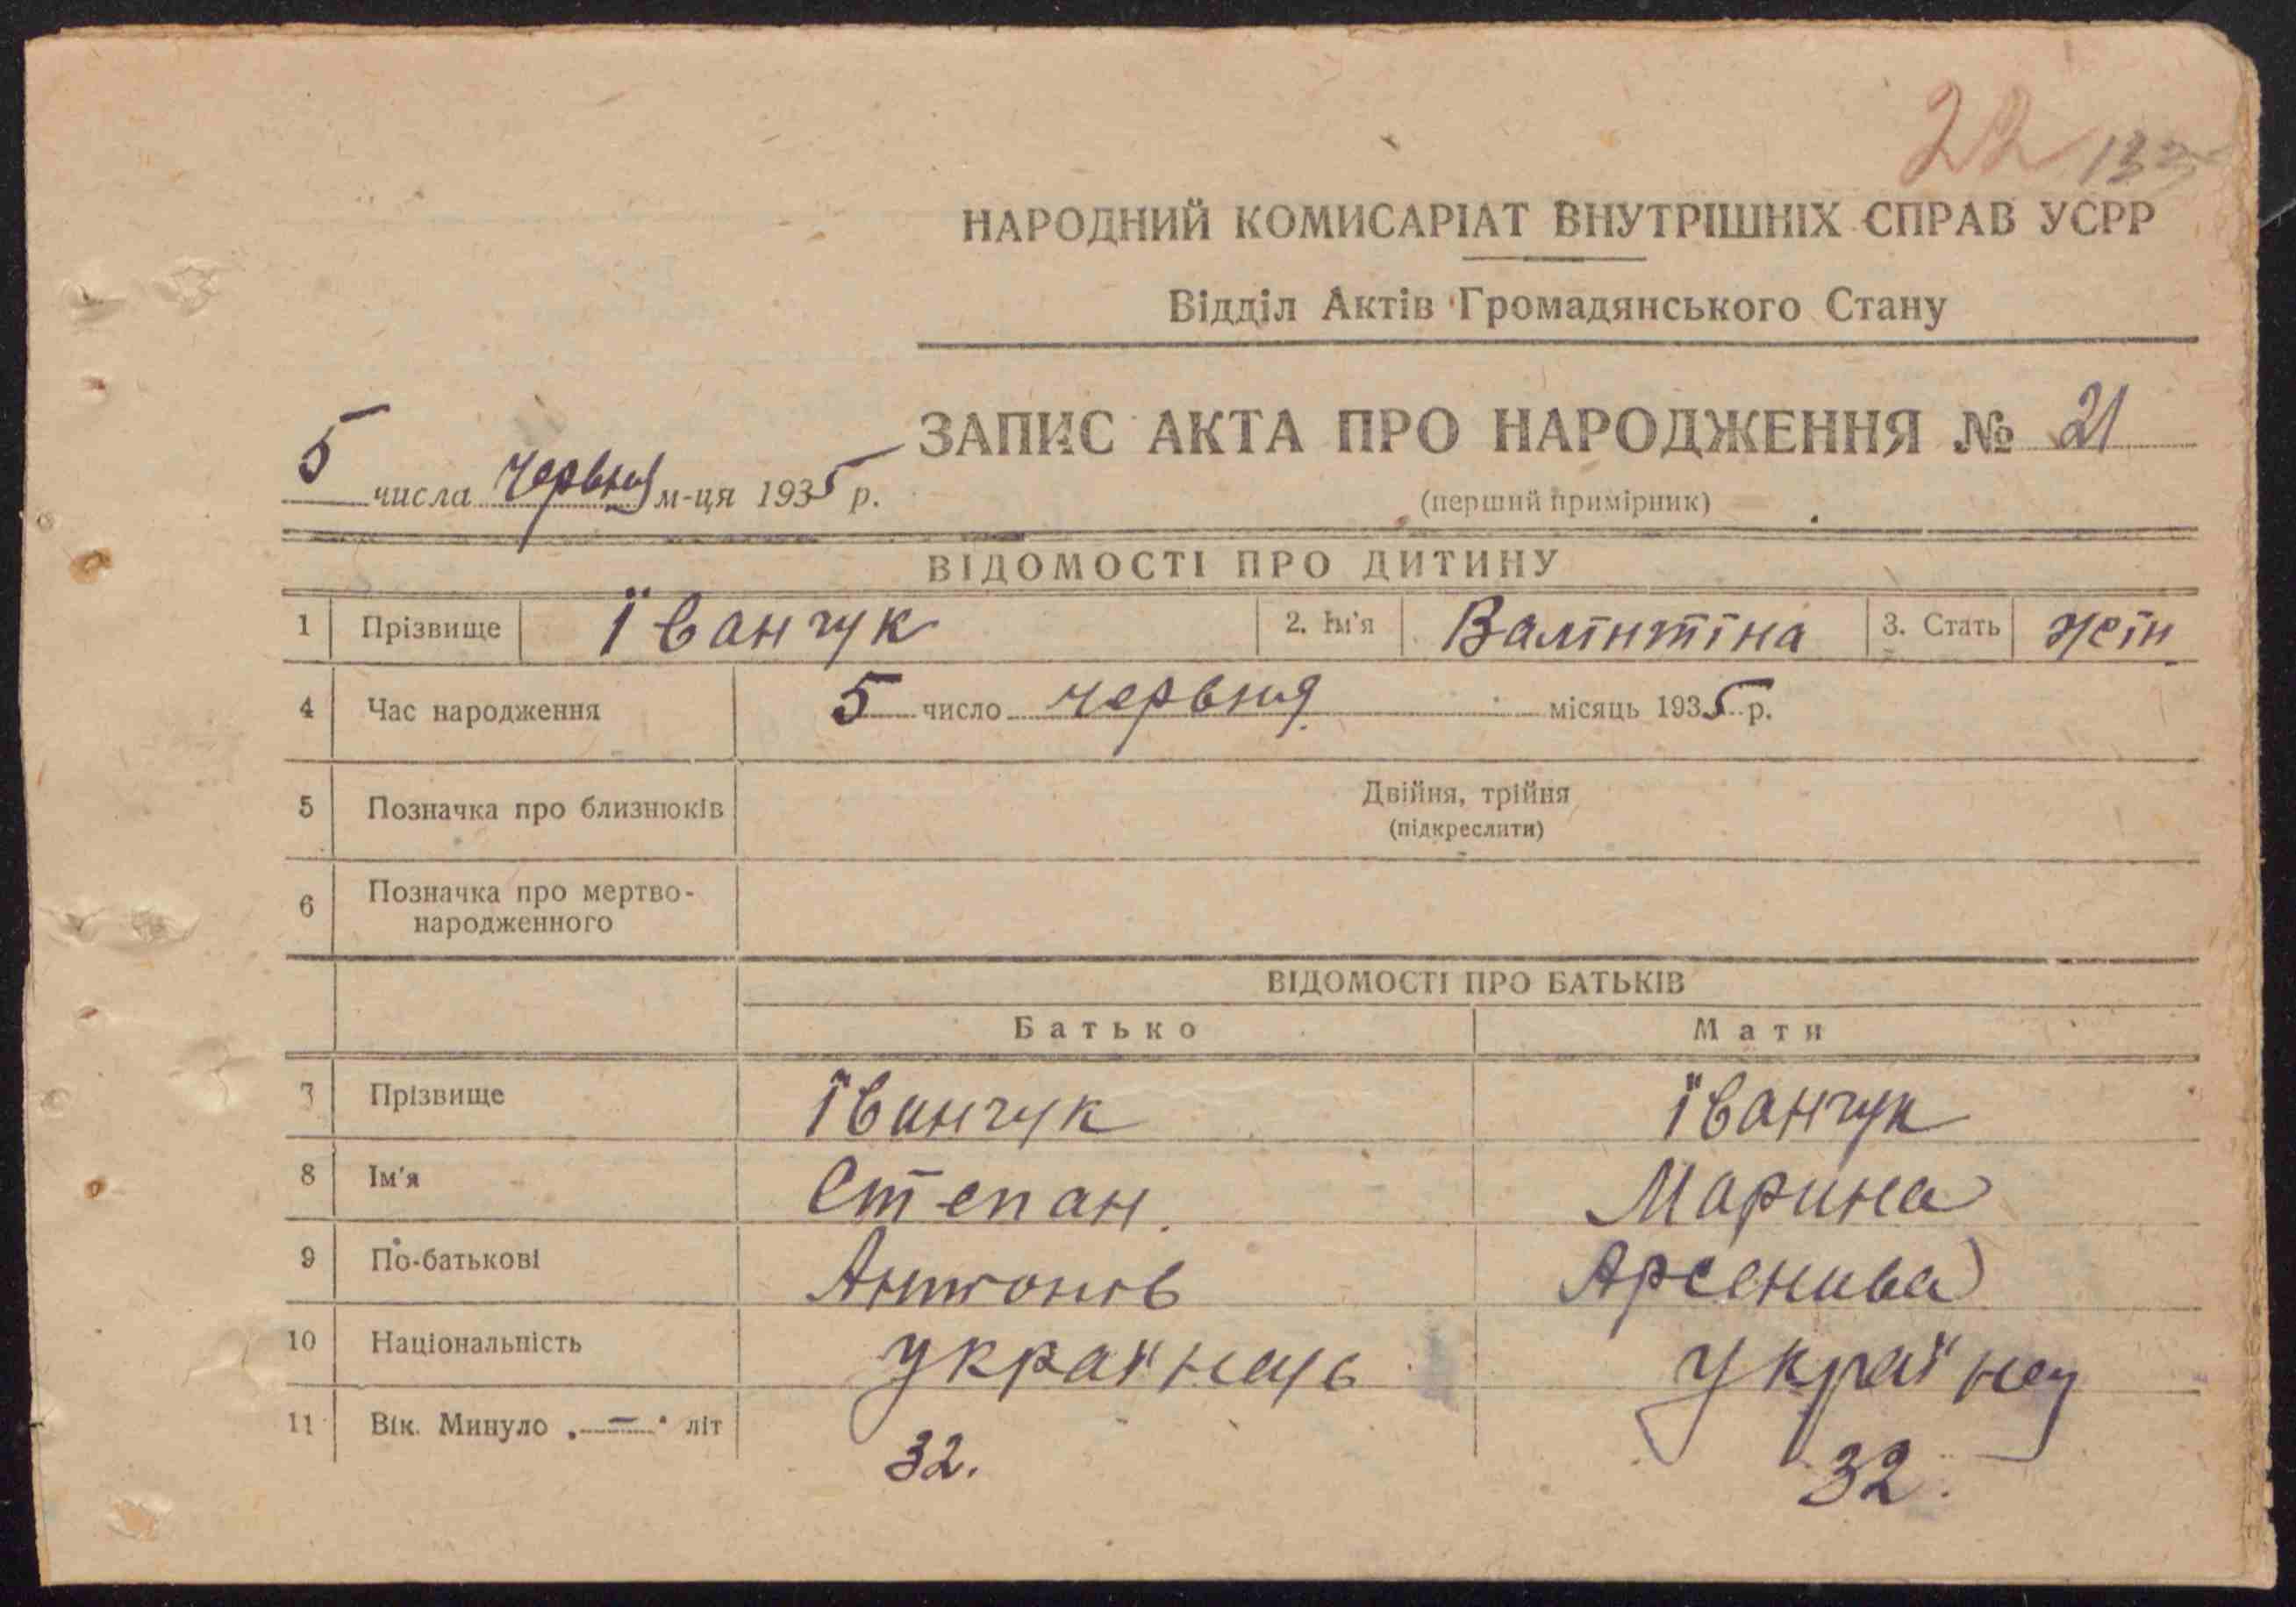 22 133
НАРОДНИЙ КОМИСАРІАТ ВНУТРІШНІХ СПРАВ УСРР
Відділ Актів Громадянського Стану
ЗАПИС АКТА ПРО НАРОДЖЕННЯ № 21
5 числа червня м-ця 1935 р.
(перший примірник)
ВІДОМОСТІ ПРО ДИТИНУ
1 Прізвище Їванчук 2. Ім'я Валінтіна 3. Стать жін
4 Час народження 5 число червня місяць 1935 р.
5 Позначка про близнюків Двійня, трійня
(підкреслити)
6 Позначка про мертво-
народженного
ВІДОМОСТІ ПРО БАТЬКІВ
Батько Мати
7 Прізвище Їванчук Їванчук
8 Ім'я Степан. Марина
9 По-батькові Антонів Арсенива
10 Національність українець україн
11 Вік. Минуло „—“ літ 32. 32.